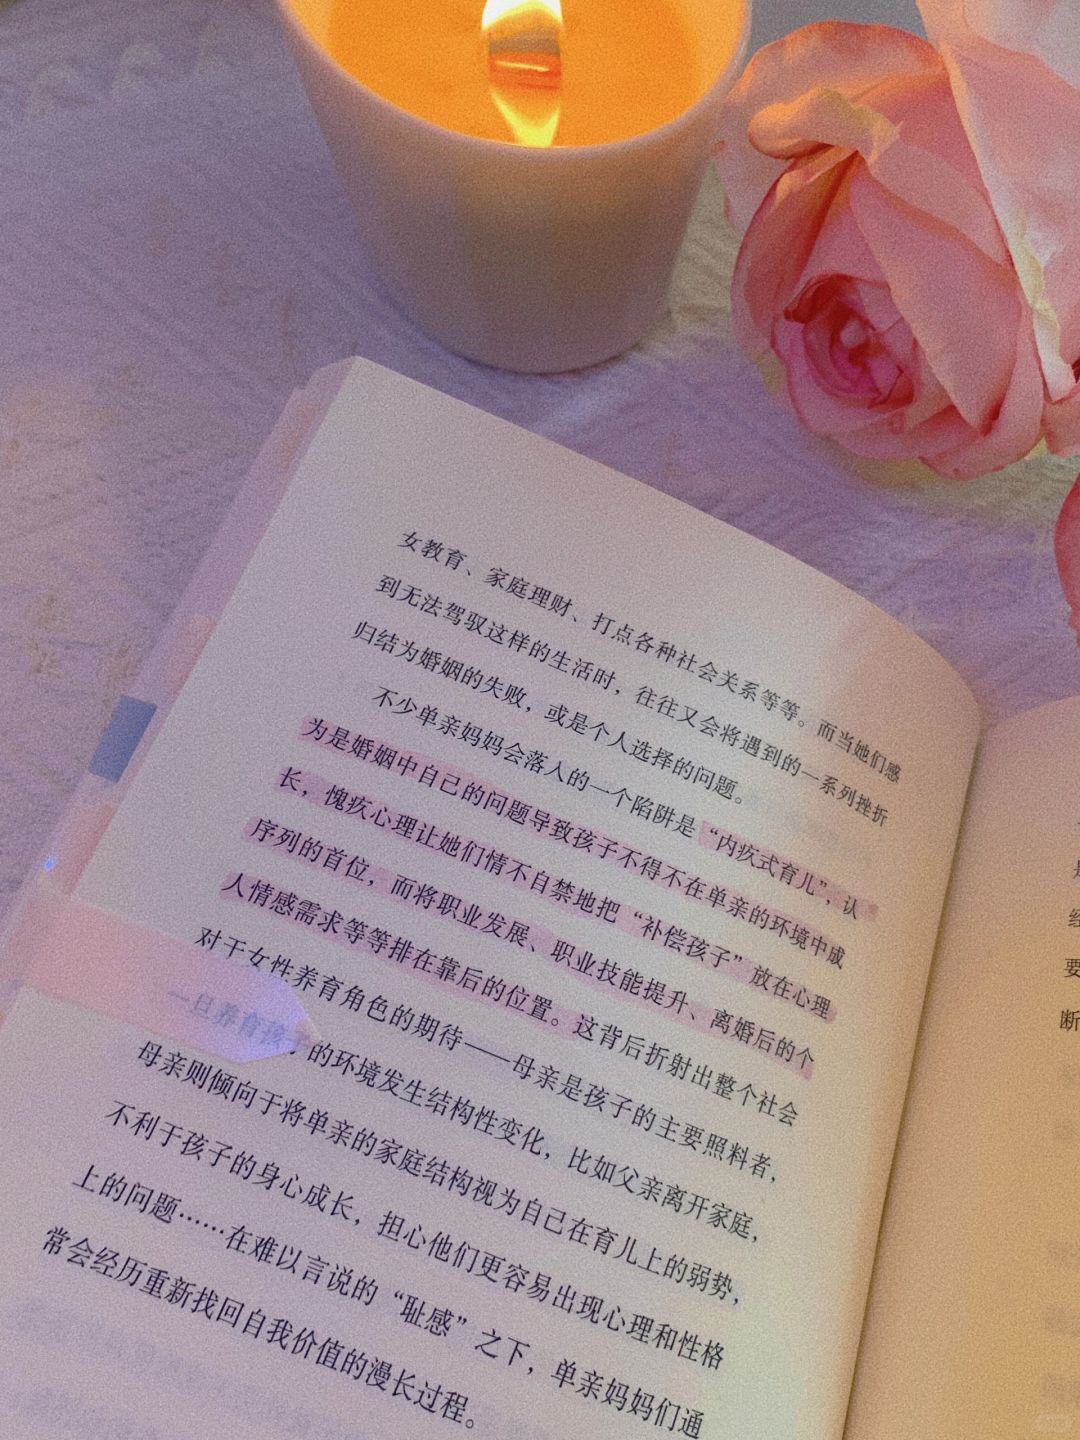 女教育、家庭理财、打点各种社会关系等等。而当她们感
到无法驾驭这样的生活时，往往又会将遇到的一系列挫折
归结为婚姻的失败，或是个人选择的问题。
不少单亲妈妈会落入的一个陷阱是“内疚式育儿”，认
为是婚姻中自己的问题导致孩子不得不在单亲的环境中成
长，愧疚心理让她们情不自禁地把“补偿孩子”放在心理
序列的首位，而将职业发展、职业技能提升、离婚后的个
人情感需求等等排在靠后的位置。这背后折射出整个社会
对于女性养育角色的期待——母亲是孩子的主要照料者，
一旦养育孩子的环境发生结构性变化，比如父亲离开家庭，
母亲则倾向于将单亲的家庭结构视为自己在育儿上的弱势，
不利于孩子的身心成长，担心他们更容易出现心理和性格
上的问题……在难以言说的“耻感”之下，单亲妈妈们通
常会经历重新找回自我价值的漫长过程。
要
断